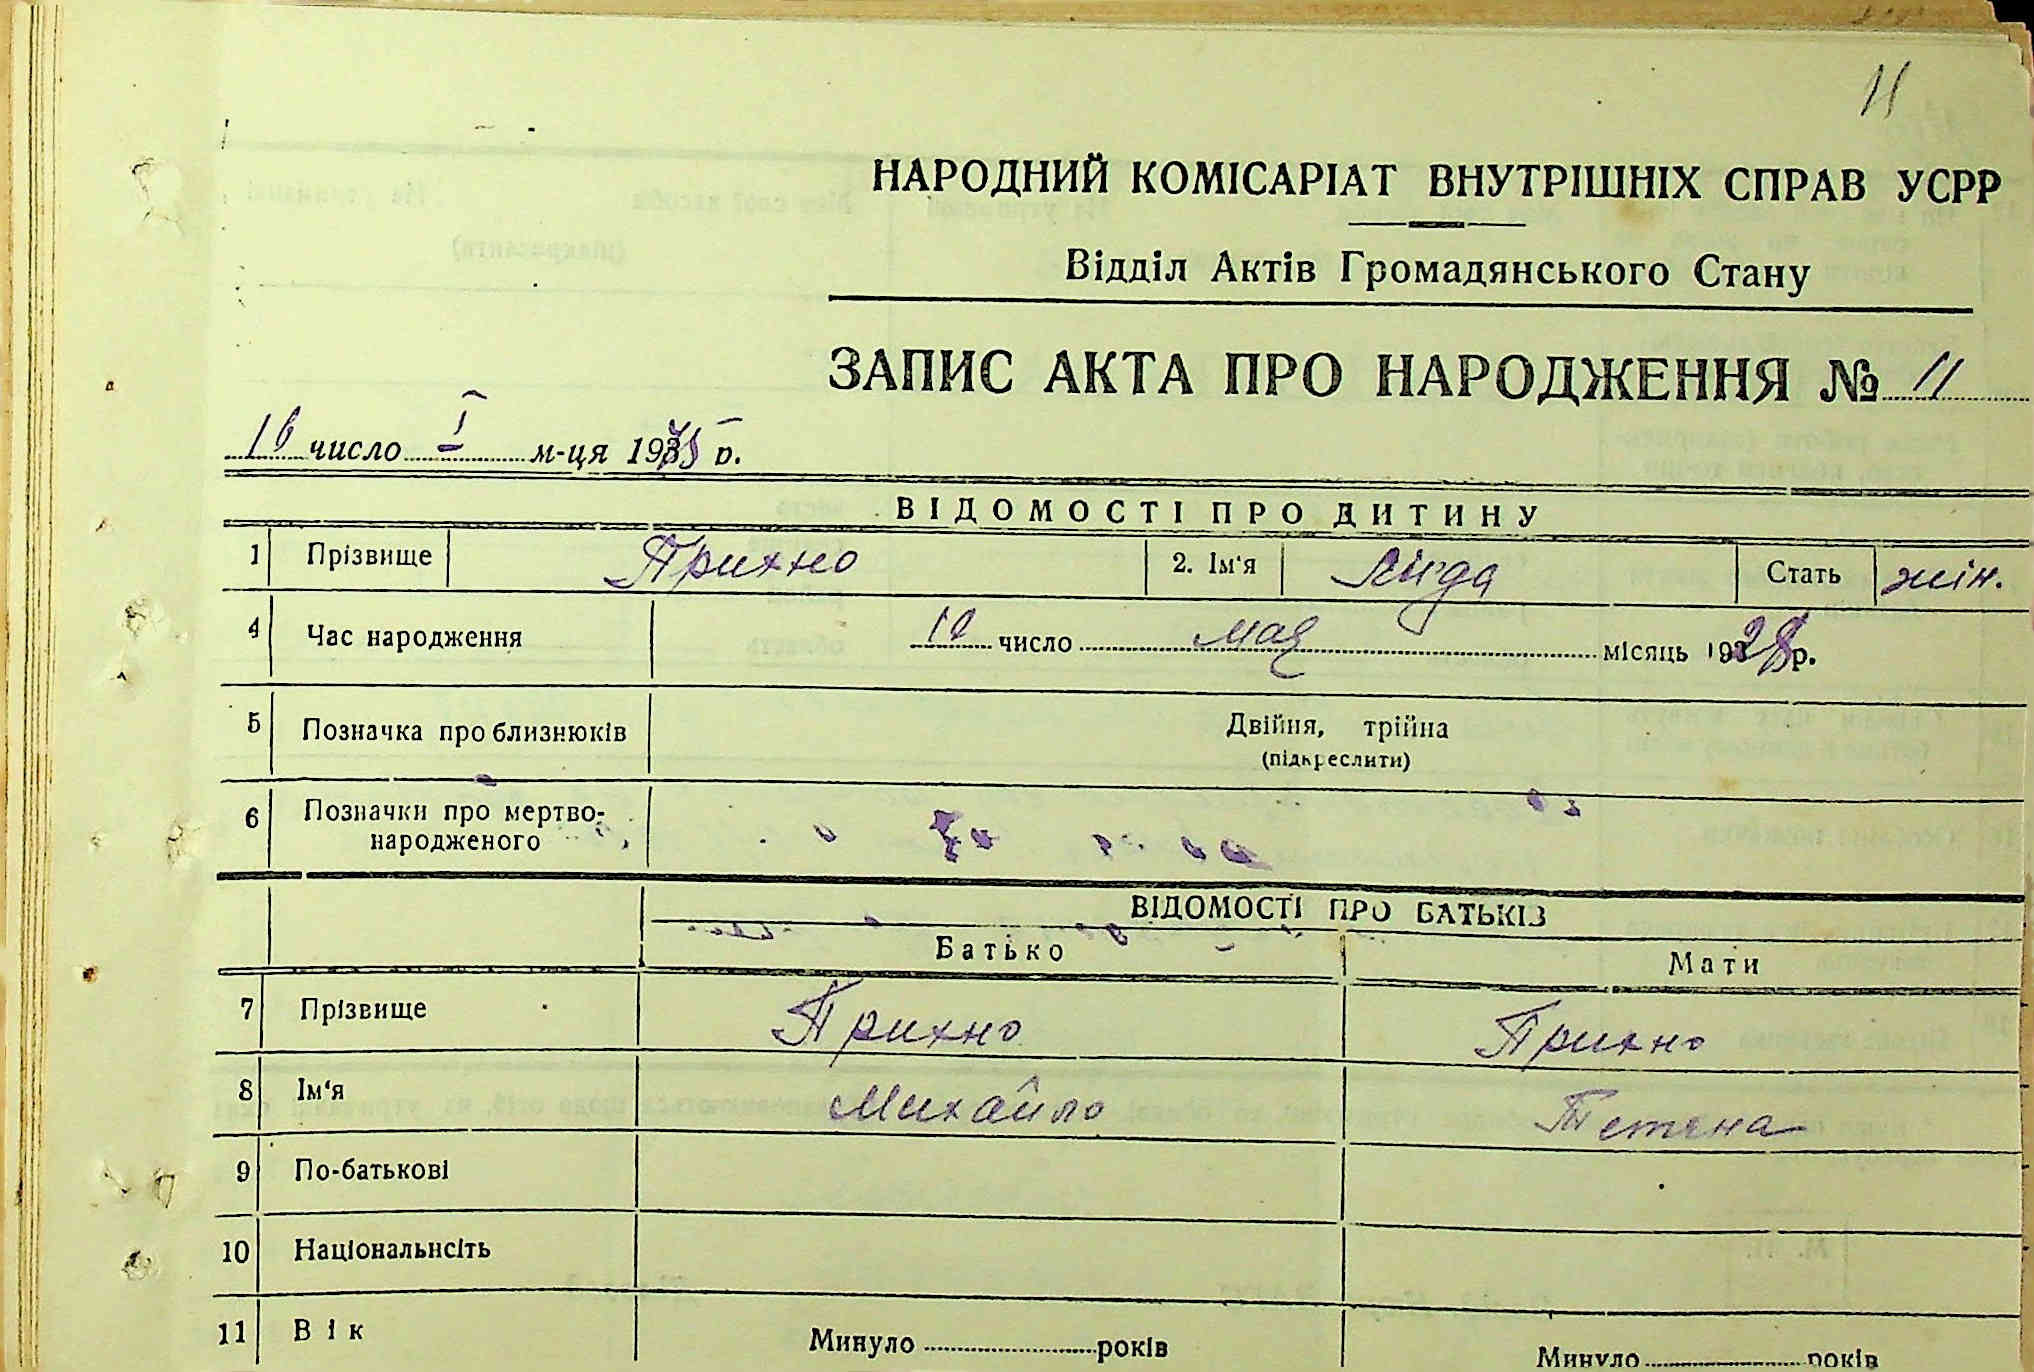 11
НАРОДНИЙ КОМІСАРІАТ ВНУТРІШНІХ СПРАВ УСРР
Відділ Актів Громадянського Стану
ЗАПИС АКТА ПРО НАРОДЖЕННЯ № 11
16 число I м-ця 1935 р.
ВІДОМОСТІ ПРО ДИТИНУ
1 Прізвище Прихно 2. Ім'я Лида Стать жін.
4 Час народження 12 число мая місяць 1928 р.
5 Позначка про близнюків Двійня, трійна
(підкреслити)
6 Позначки про мертво-
народженого
ВІДОМОСТІ ПРО БАТЬКІВ
Батько Мати
7 Прізвище Прихно Прихно
8 Ім'я Михайло Тетяна
9 По-батькові
10 Національнсіть
11 Вік Минуло років Минуло років